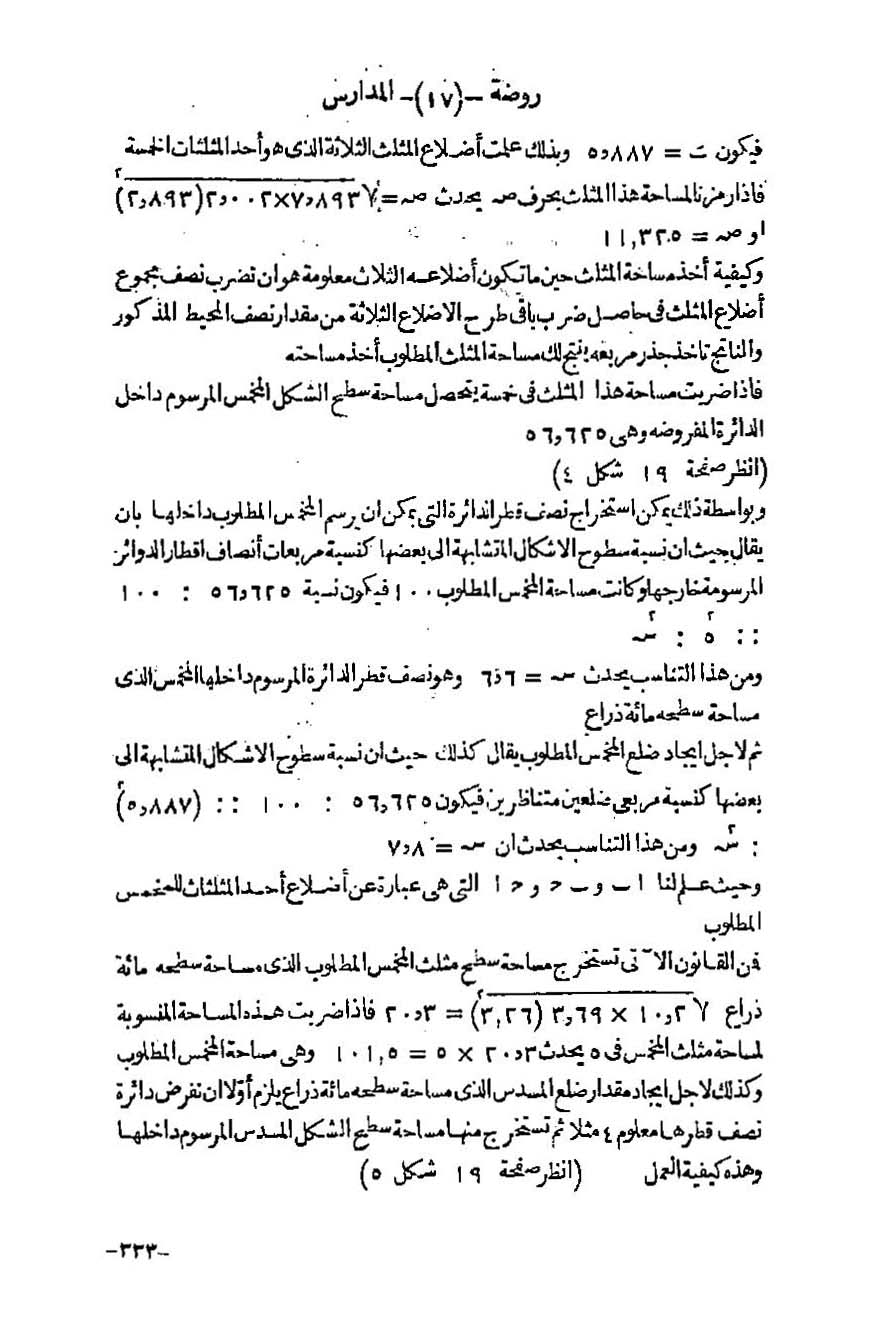 روضة -(١٧)- المدارس
فيكون ت = ٥٫٨٨٧ وبذلك علمت أضلاع المثلث الثلاثة الذى هو أحد المثلثات الخمسة
فاذا رمزنا لمساحة هذا المثلث بحرف صہ يحدث صہ = √٧٫٨٩٣×٢٫٠٠٢(٢٫٨٩٣)٢
او صہ = ١١,٣٢٥
وكيفية أخذ مساحة المثلث حين ما تكون أضلاعه الثلاث معلومة هو ان تضرب نصف مجموع
أضلاع المثلث فى حاصل ضرب باقى طرح الاضلاع الثلاثة من مقدار نصف المحيط المذكور
والناتج تاخذ جذر مربعه ينتج لك مساحة المثلث المطلوب أخذ مساحته
فاذا ضربت مساحة هذا المثلث فى خمسة يتحصل مساحة سطح الشكل المخمس المرسوم داخل
الدائرة المفروضه وهى ٥٦٫٦٢٥
(انظر صفحة ١٩ شكل ٤)
وبواسطة ذلك يمكن استخراج نصف قطر الدائرة التى يمكن ان يرسم المخمس المطلوب داخلها بان
يقال حيث ان نسبة سطوح الاشكال المتشابهة الى بعضها كنسبة مربعات أنصاف اقطار الدوائر
المرسومة خارجها وكانت مساحة المخمس المطلوب ١٠٠ فيكون نسبة ٥٦٫٦٢٥ : ١٠٠
:: ٥٢ : سہ٢
ومن هذا التناسب يحدث سہ = ٦٫٦ وهو نصف قطر الدائرة المرسوم داخلها المخمس الذى
مساحة سطحه مائة ذراع
ثم لاجل ايجاد ضلع المخمس المطلوب يقال كذلك حيث ان نسبة سطوح الاشكال المتشابهة الى
بعضها كنسبة مربعى ضلعين متناظرين فيكون ٥٦,٦٢٥ : ١٠٠ :: (٥٫٨٨٧)٢
: سہ٢ ومن هذا التناسب يحدث ان سہ = ٧٫٨
وحيث علم لنا ا ب و ب ح و ح ا التى هى عبارة عن أضلاع أحد المثلثات للمخمس
المطلوب
فمن القانون الآتى تستخرج مساحة سطح مثلث المخمس المطلوب الذى مساحة سطحه مائة
ذراع √١٠٫٢ × ٣٫٦٩ (٣,٢٦)٢ = ٢٠٫٣ فاذا ضربت هذه المساحة المنسوبة
لمساحة مثلث المخمس فى ٥ يحدث ٢٠٫٣ × ٥ = ١٠١,٥ وهى مساحة المخمس المطلوب
وكذلك لاجل ايجاد مقدار ضلع المسدس الذى مساحة سطحه مائة ذراع يلزم أوّلا ان نفرض دائرة
نصف قطرها معلوم ٤ مثلا ثم تستخرج منها مساحة سطح الشكل المسدس المرسوم داخلها
وهذه كيفية العمل (انظر صفحة ١٩ شكل ٥)
-٣٣٣-